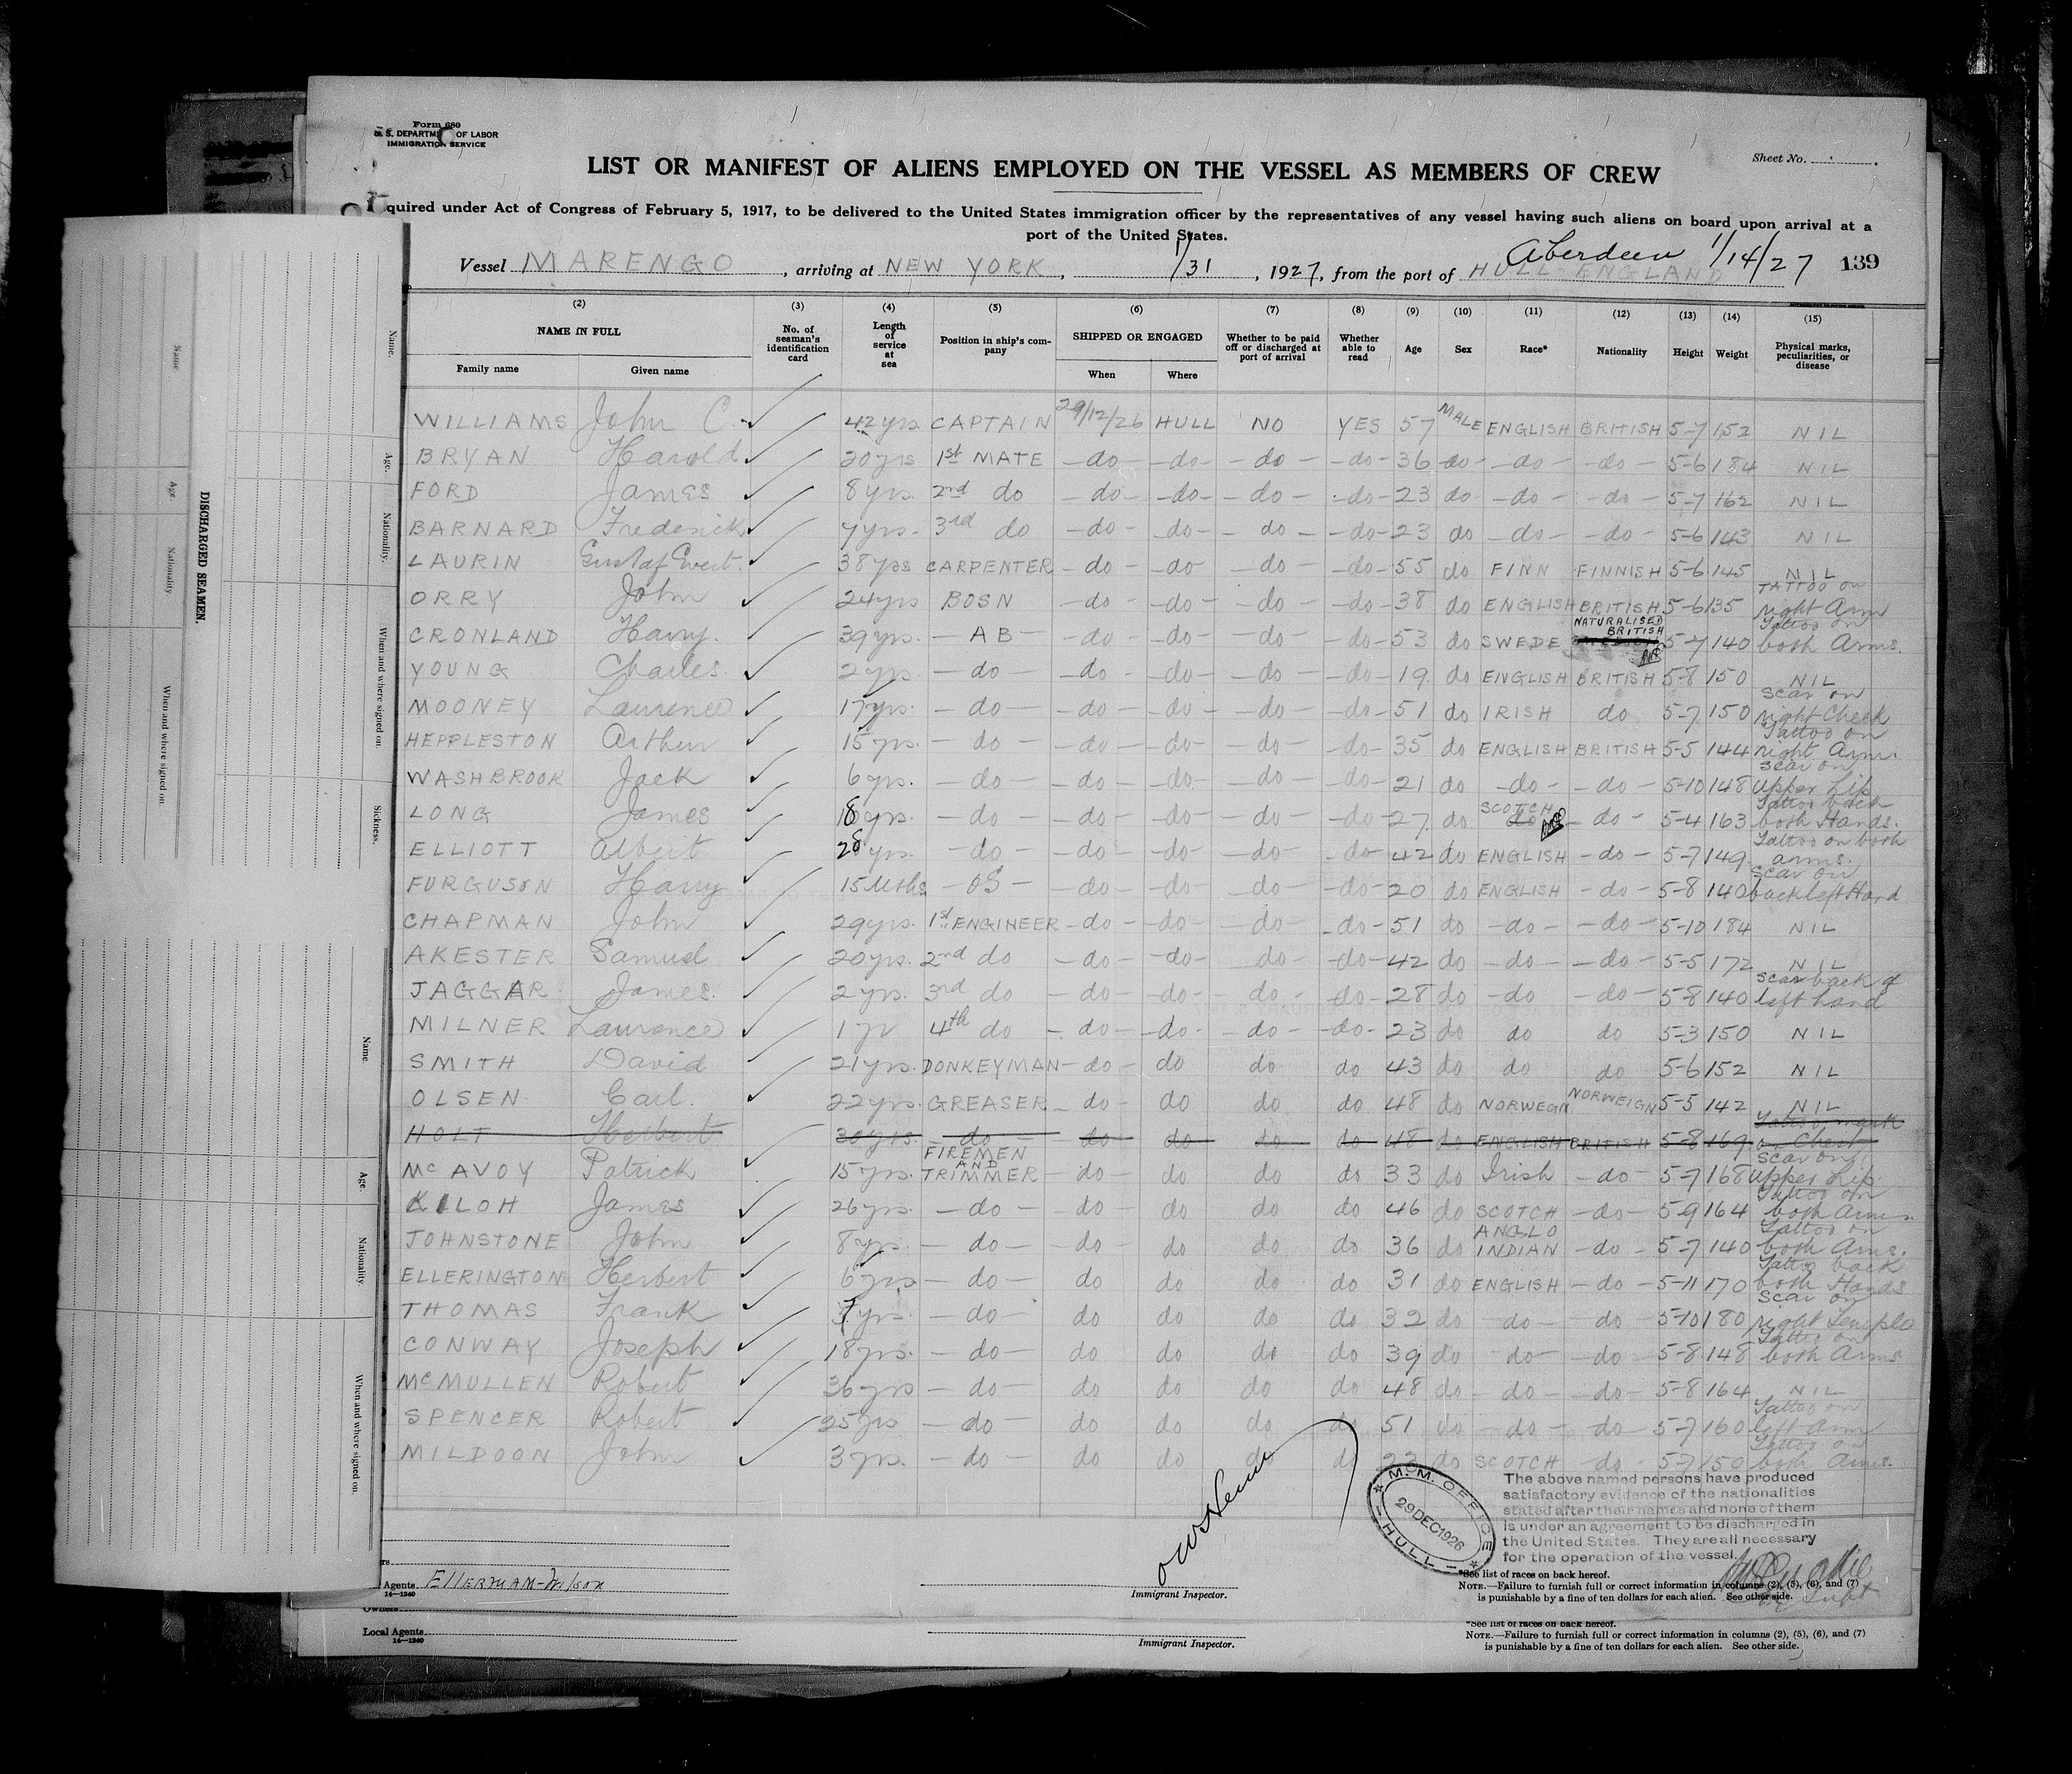 Form 680
U. S. DEPARTMENT OF LABOR
IMMIGRATION SERVICE
Sheet No.
LIST OR MANIFEST OF ALIENS EMPLOYED ON THE VESSEL AS MEMBERS OF CREW
quired under Act of Congress of February 5, 1917, to be delivered to the United States immigration officer by the representatives of any vessel having such aliens on board upon arrival at a
port of the United States.
Vessel MARENGO, arriving at NEW YORK, 1/31, 1927, from the port of HULL ENGLAND Aberdeen 1/14/27 139
(2) (3) (4) (5) (6) (7) (8) (9) (10) (11) (12) (13) (14) (15)
NAME IN FULL No. of seaman's identification card Length of service at sea Position in ship's company SHIPPED OR ENGAGED Whether to be paid off or discharged at port of arrival Whether able to read Age Sex Race* Nationality Height Weight Physical marks, peculiarities, or disease
Family name Given name When Where
WILLIAMS John C. 42 yrs CAPTAIN 29/12/26 HULL NO YES 57 MALE ENGLISH BRITISH 5-7 152 NIL
BRYAN Harold 20 yrs 1st MATE do do do do 36 do do do 5-6 184 NIL
FORD James 8 yrs. 2nd do do do do do 23 do do do 5-7 162 NIL
BARNARD Frederick 7 yrs. 3rd do do do do do 23 do do do 5-6 143 NIL
LAURIN Gustaf Evert. 38 yrs CARPENTER do do do do 55 do FINN FINNISH 5-6 145 NIL
ORRY John 24 yrs BOSN do do do do 38 do ENGLISH BRITISH 5-6 135 TATTOO on right Arm
CRONLAND Harry. 39 yrs. AB do do do do 53 do SWEDE NATURALISED BRITISH 5-7 140 Tattoo on both Arms.
YOUNG Charles 2 yrs. do do do do do 19 do ENGLISH BRITISH 5-8 150 NIL
MOONEY Laurence 17 yrs. do do do do do 51 do IRISH do 5-7 150 Scar on right Cheek
HEPPLESTON Arthur 15 yrs. do do do do do 35 do ENGLISH BRITISH 5-5 144 Tattoo on right Arm.
WASHBROOK Jack 6 yrs. do do do do do 21 do do do 5-10 148 Scar on upper Lip
LONG James 18 yrs. do do do do do 27 do SCOTCH do 5-4 163 Tattoo back both Hands.
ELLIOTT Albert 28 yrs. do do do do do 42 do ENGLISH do 5-7 149 Tattoo on both arms.
FURGUSON Harry 15 Mths OS do do do do 20 do ENGLISH do 5-8 140 Scar on back left Hand
CHAPMAN John 29 yrs. 1st ENGINEER do do do do 51 do do do 5-10 184 NIL
AKESTER Samuel 20 yrs. 2nd do do do do do 42 do do do 5-5 172 NIL
JAGGAR James. 2 yrs. 3rd do do do do do 28 do do do 5-8 140 Scar back of left hand
MILNER Laurence 1 yr 4th do do do do do 23 do do do 5-3 150 NIL
SMITH David 21 yrs. DONKEYMAN do do do do 43 do do do 5-6 152 NIL
OLSEN Carl. 22 yrs. GREASER do do do do 48 do NORWEGN NORWEIGN 5-5 142 NIL
HOLT Herbert 30 yrs. do do do do do 48 do ENGLISH BRITISH 5-8 169 Tattoo mark on Chest
McAVOY Patrick 15 yrs. FIREMEN AND TRIMMER do do do do 33 do Irish do 5-7 168 Scar on upper Lip
KILOH James 26 yrs. do do do do do 46 do SCOTCH do 5-9 164 Tattoo on both Arms.
JOHNSTONE John 8 yrs. do do do do do 36 do ANGLO INDIAN do 5-7 140 Tattoo on both Arms.
ELLERINGTON Herbert 6 yrs do do do do do 31 do ENGLISH do 5-11 170 Tattoo back both Hands
THOMAS Frank 7 yrs. do do do do do 32 do do do 5-10 180 Scar on right Temple
CONWAY Joseph 18 yrs. do do do do do 39 do do do 5-8 148 Tattoo on both Arms
McMULLEN Robert 36 yrs do do do do do 48 do do do 5-8 164 NIL
SPENCER Robert 25 yrs do do do do do 51 do do do 5-7 160 Tattoo on left Arm
MILDOON John 3 yrs. do do do do do do SCOTCH do 5-7 150 Tattoo on both Arms.
M. M. OFFICE
29 DEC 1926
HULL
The above named persons have produced
satisfactory evidence of the nationalities
stated after their names and none of them
is under an agreement to be discharged in
the United States. They are all necessary
for the operation of the vessel.
Supt
Agents Ellerman-Wilson
14-1240
Immigrant Inspector.
*See list of races on back hereof.
NOTE.—Failure to furnish full or correct information in columns (2), (5), (6), and (7)
is punishable by a fine of ten dollars for each alien. See other side.
Owners
Local Agents
14-1240
Immigrant Inspector.
*See list of races on back hereof.
NOTE.—Failure to furnish full or correct information in columns (2), (5), (6), and (7)
is punishable by a fine of ten dollars for each alien. See other side.
DISCHARGED SEAMEN.
Name.
Age.
Nationality.
When and where signed on.
Sickness.
Name
Age.
Nationality
When and where signed on
Name.
Age.
Nationality.
When and where signed on.